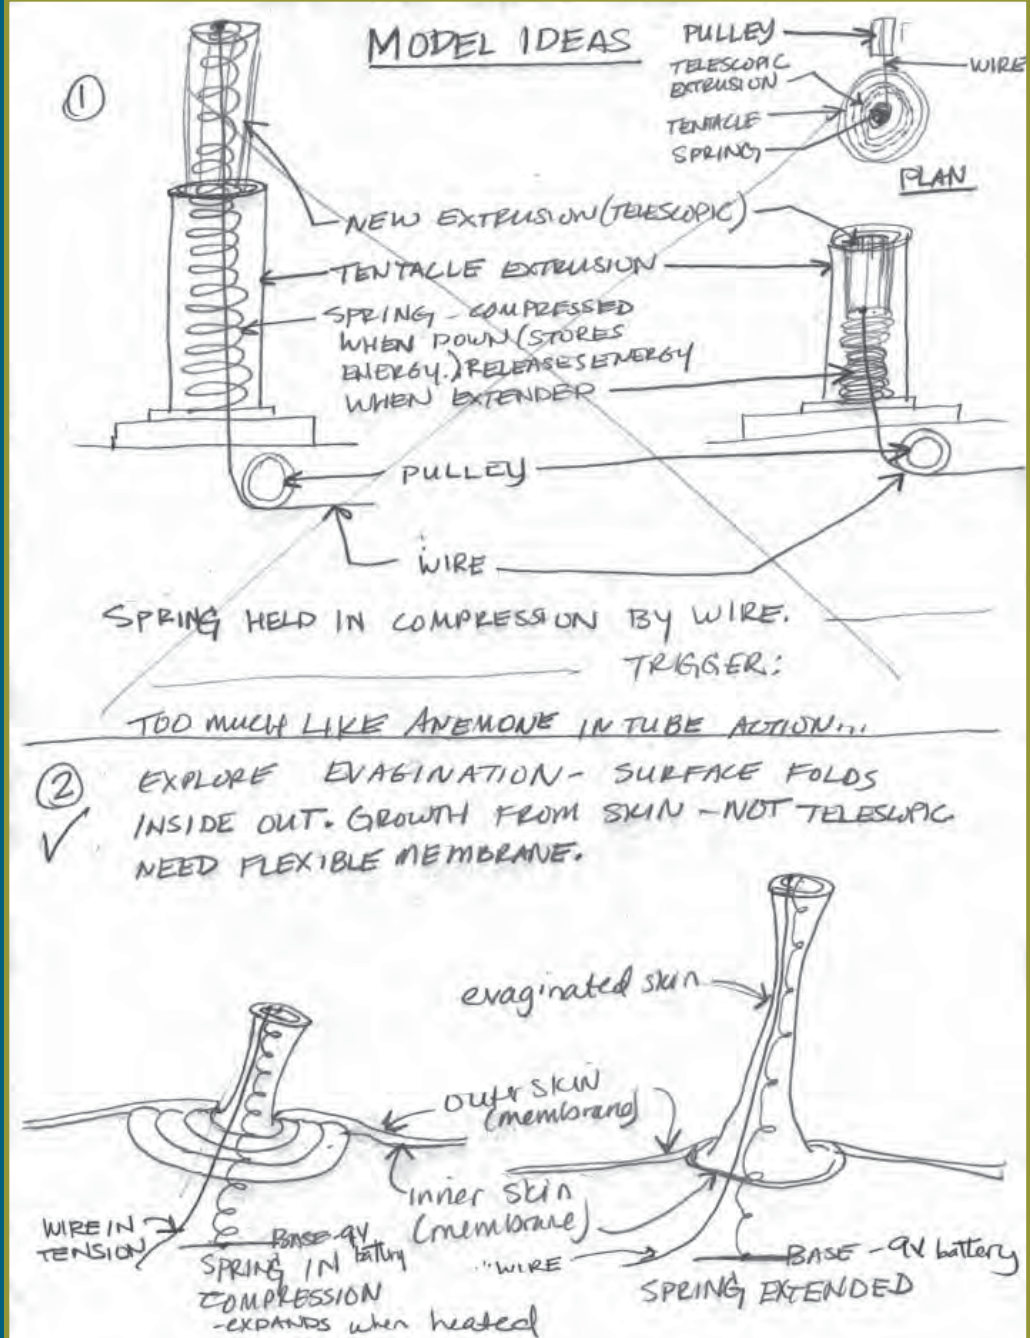 MODEL IDEAS
PULLEY
TELESCOPIC
EXTRUSION
WIRE
TENTACLE
SPRING
PLAN
①
NEW EXTRUSION (TELESCOPIC)
TENTACLE EXTRUSION
SPRING - COMPRESSED
WHEN DOWN (STORES
ENERGY.) RELEASES ENERGY
WHEN EXTENDED
PULLEY
WIRE
SPRING HELD IN COMPRESSION BY WIRE.
TRIGGER:
TOO MUCH LIKE ANEMONE IN TUBE ACTION...
②
EXPLORE EVAGINATION - SURFACE FOLDS
INSIDE OUT. GROWTH FROM SKIN - NOT TELESCOPIC.
NEED FLEXIBLE MEMBRANE.
evaginated skin
outer SKIN
(membrane)
inner skin
(membrane)
WIRE IN
TENSION
BASE - 9V
battery
SPRING IN
COMPRESSION
- EXPANDS when heated
"WIRE
BASE - 9V battery
SPRING EXTENDED